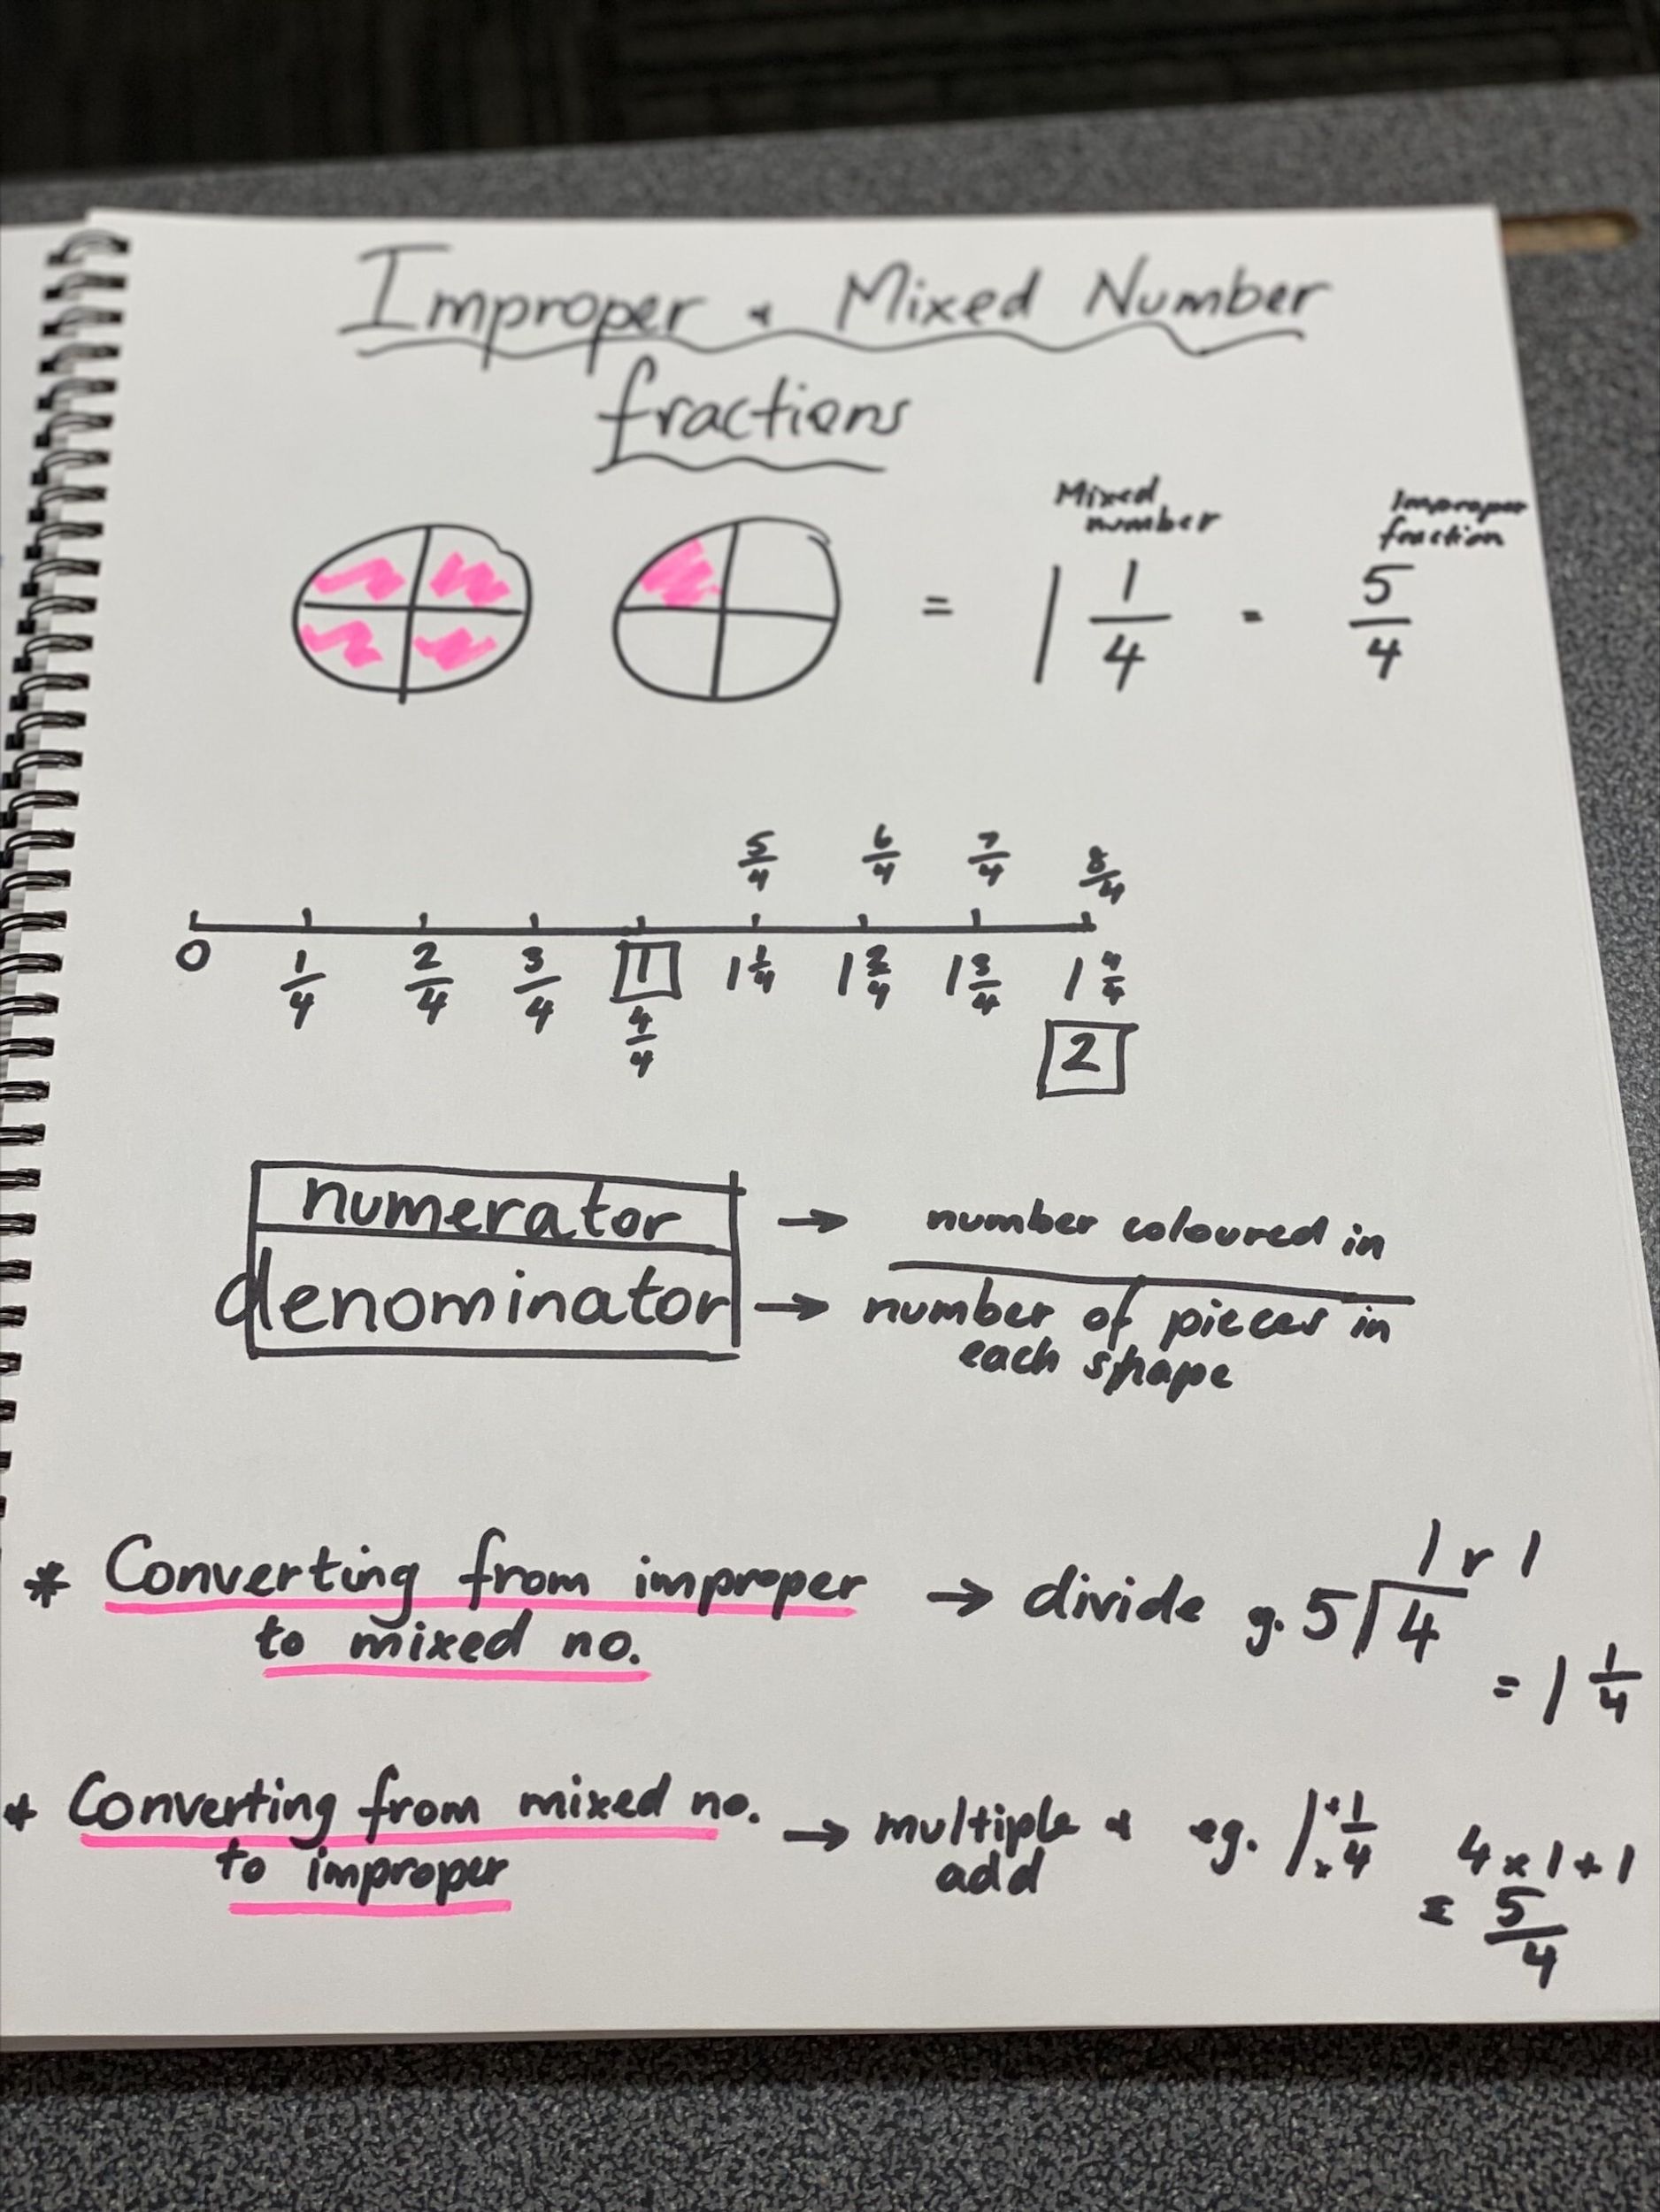 Improper & Mixed Number
fractions
Mixed number
Improper fraction
= 1 1/4 = 5/4
5/4 6/4 7/4 8/4
0 1/4 2/4 3/4 1 1 1/4 1 2/4 1 3/4 1 4/4
4/4 2
numerator → number coloured in
denominator → number of pieces in
each shape
1 r 1
* Converting from improper → divide g. 5 4
to mixed no.
= 1 1/4
* Converting from mixed no. → multiple & eg. 1 + 1/x 4 4 x 1 + 1
to improper add
= 5/4